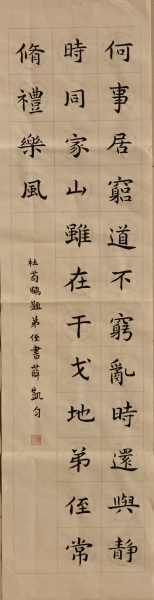 何事居窮道不窮亂時還與靜
時同家山雖在干戈地弟侄常
脩禮樂風
杜荀鶴題弟侄書薛凱勻